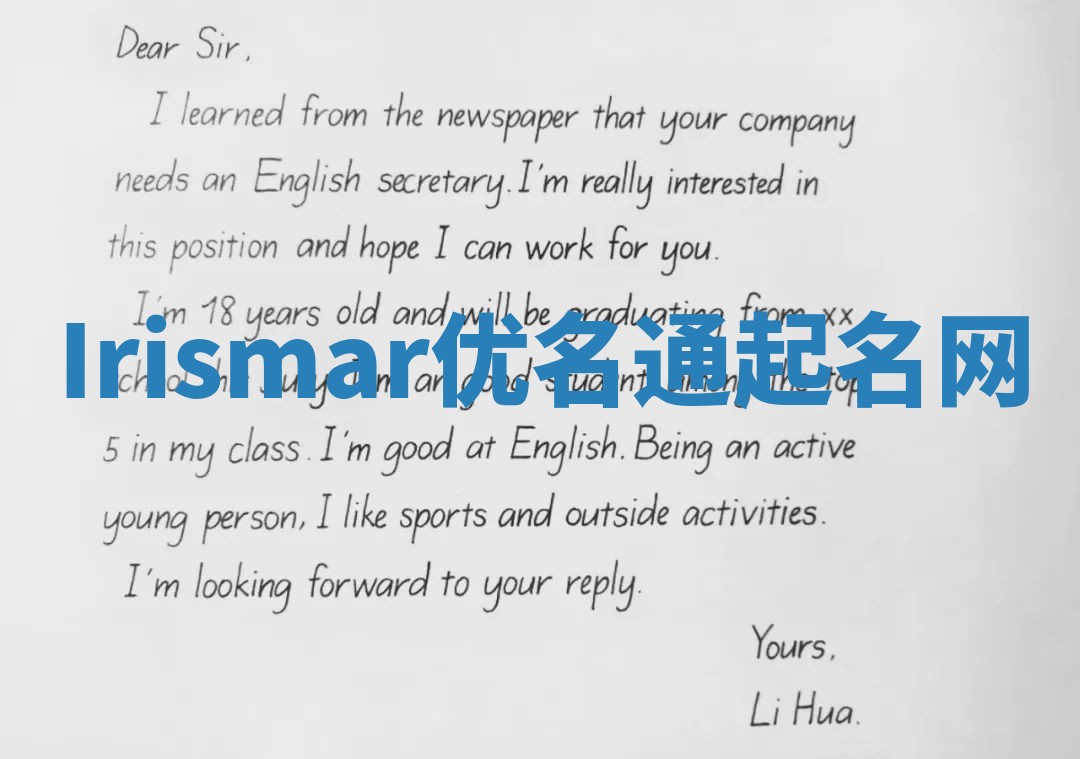 Dear Sir,
I learned from the newspaper that your company
needs an English secretary. I'm really interested in
this position and hope I can work for you.
I'm 18 years old and will be graduating from xx
Irismar优名通起名网
July. I'm an good student among the top
5 in my class. I'm good at English. Being an active
young person, I like sports and outside activities.
I'm looking forward to your reply.
Yours,
Li Hua.